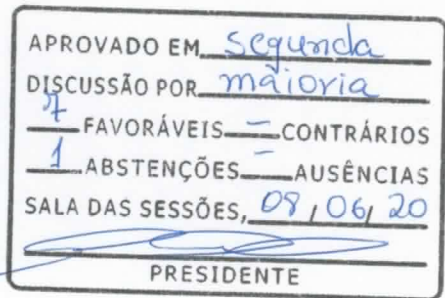 APROVADO EM segunda
DISCUSSÃO POR maioria
7 FAVORÁVEIS - CONTRÁRIOS
1 ABSTENÇÕES - AUSÊNCIAS
SALA DAS SESSÕES, 08 / 06 / 20
PRESIDENTE